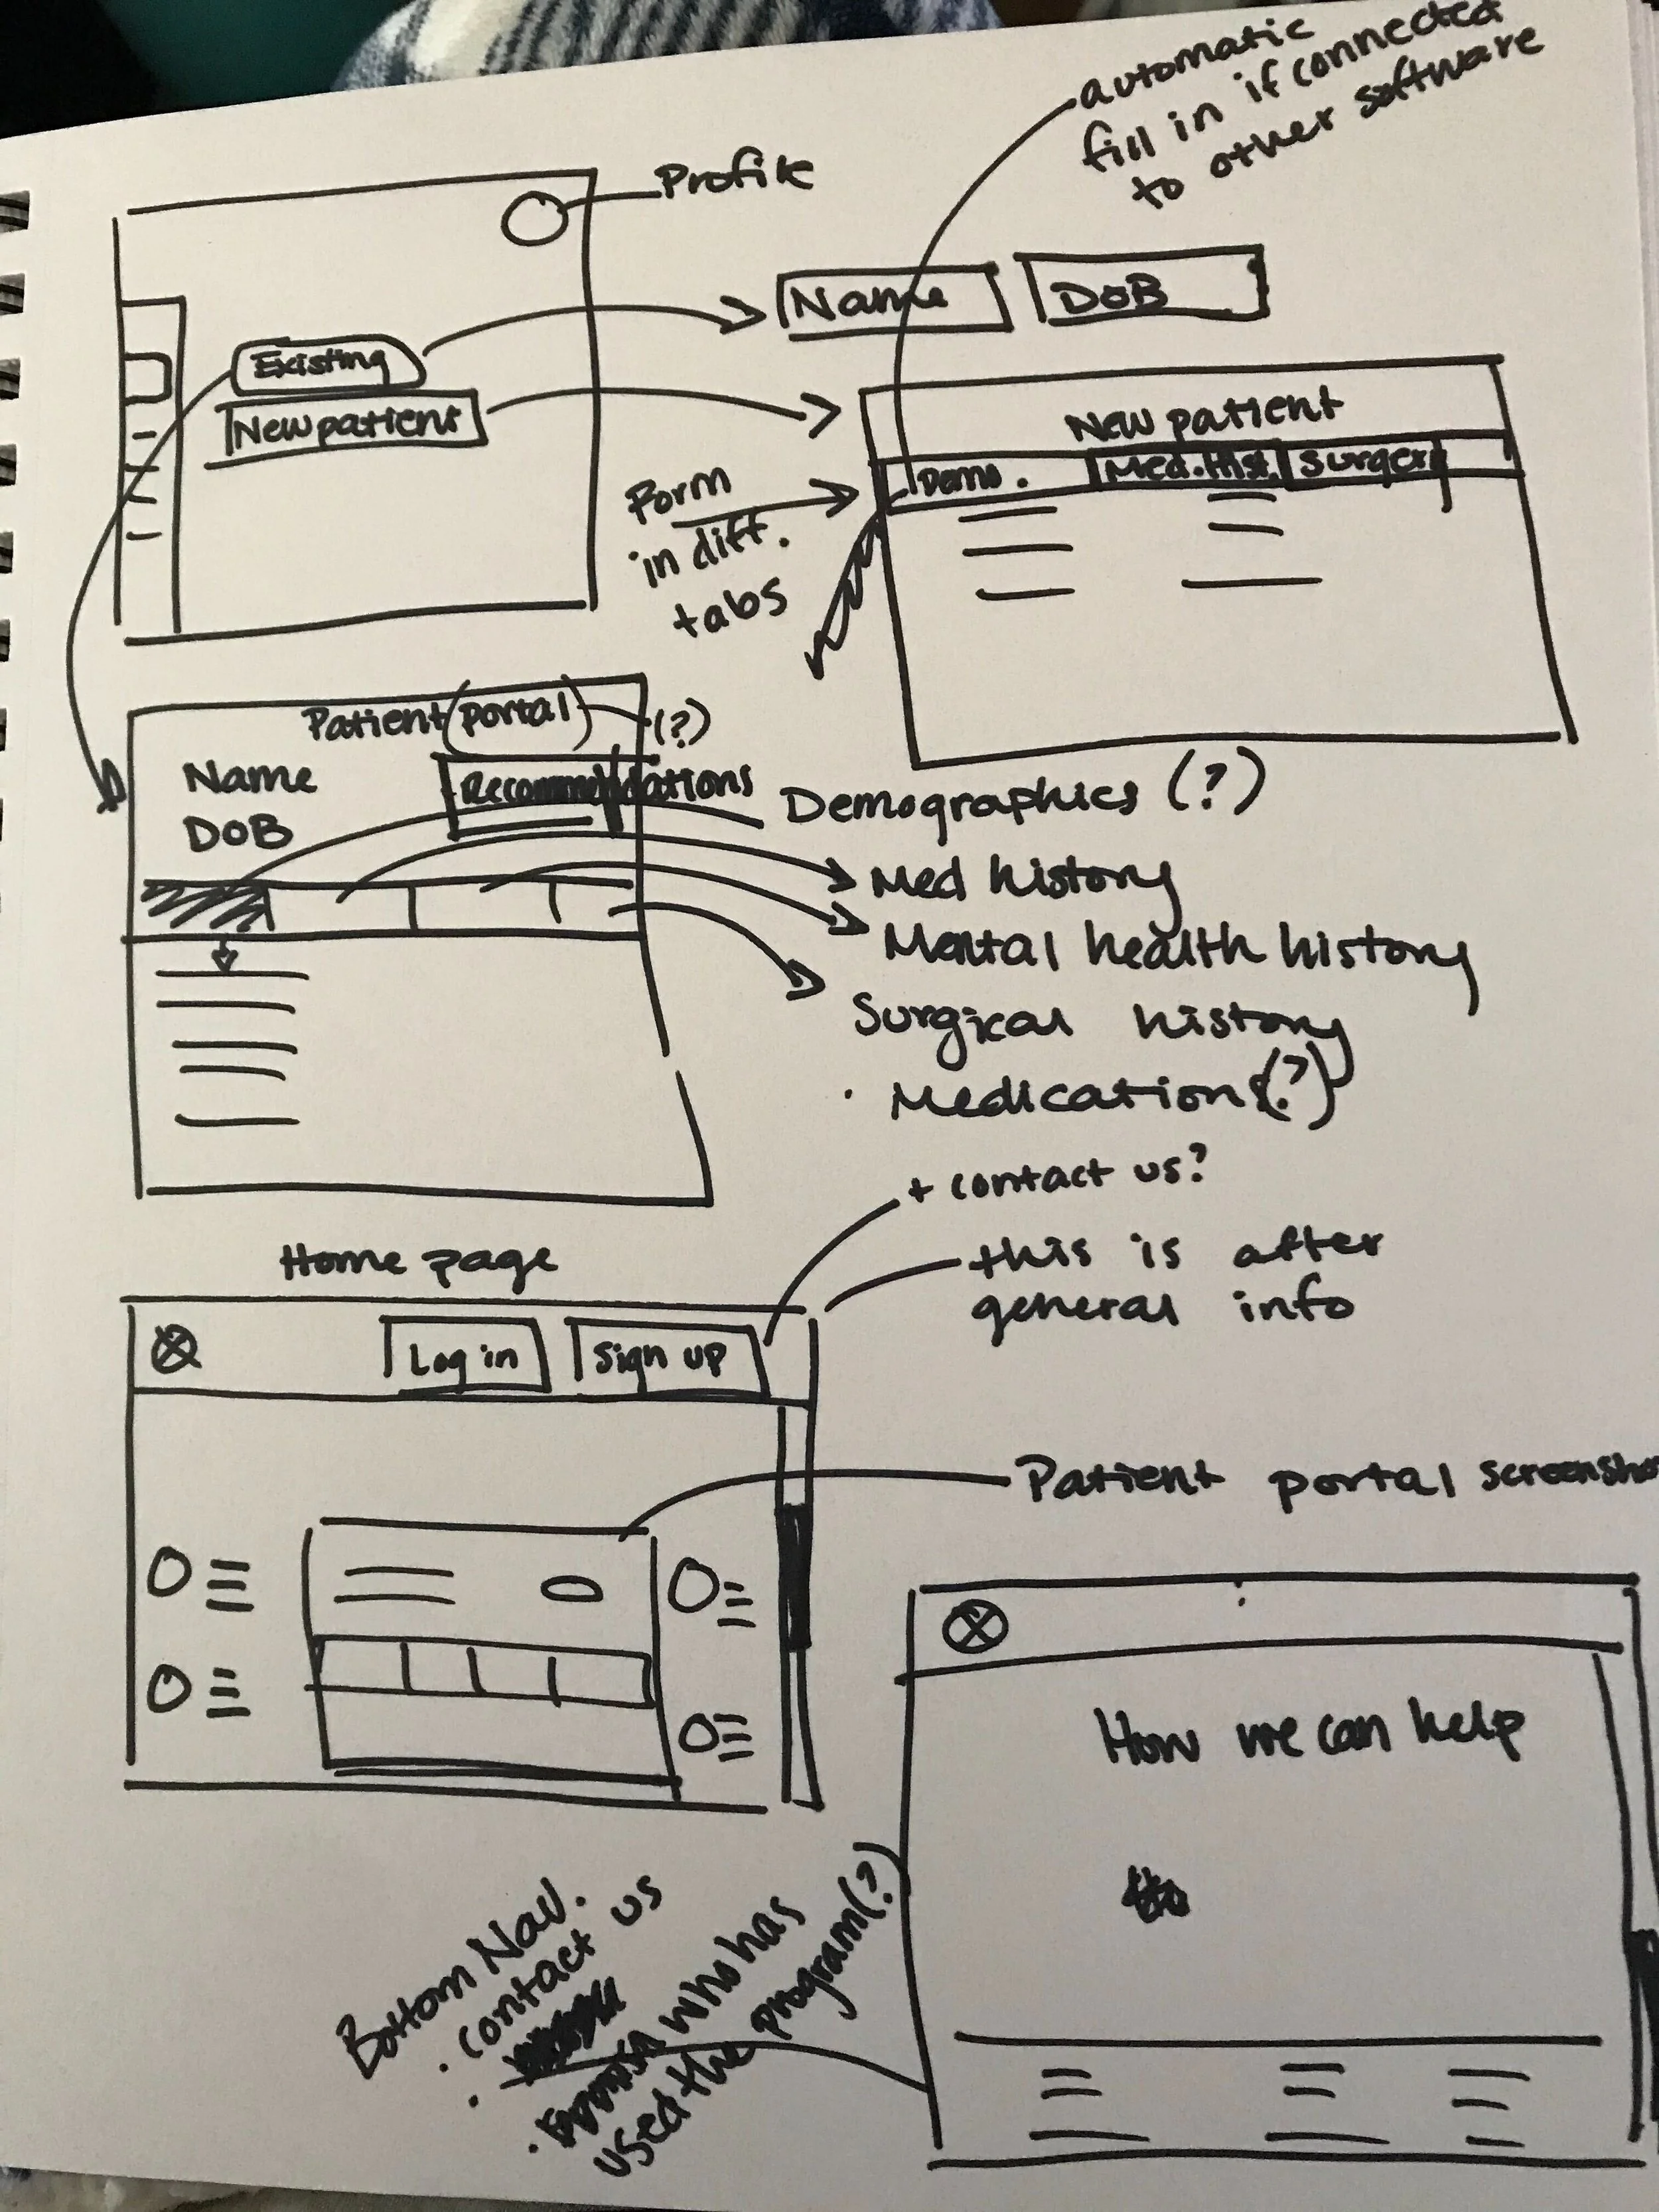 automatic
fill in if connected
to other software
Profile
Name
DOB
Existing
New patient
New patient
Demo.
Med. Hist.
Surgery
Form
in diff.
tabs
Patient (portal)
(?)
Name
DOB
Recommendations
Demographics (?)
Med history
Mental health history
Surgical history
Medications (?)
+ contact us?
this is after
general info
Home page
Log in
Sign up
Patient portal screensho
How we can help
Bottom Nav.
· contact us
who has
used the program(?)